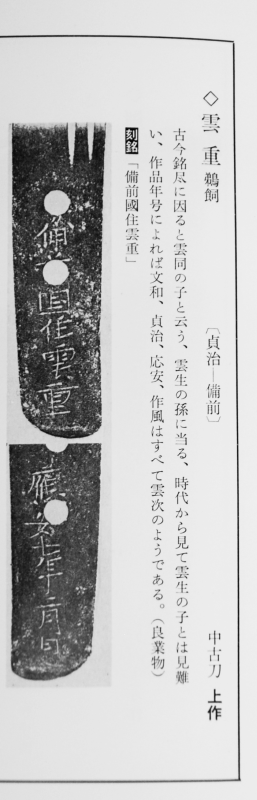 ◇雲重 鵜飼 〔貞治―備前〕 中古刀 上作
古今銘尽に因ると雲同の子と云う、雲生の孫に当る、時代から見て雲生の子とは見難
い、作品年号によれば文和、貞治、応安、作風はすべて雲次のようである。（良業物）
刻銘「備前國住雲重」
備前国住雲重
應安七年十二月日